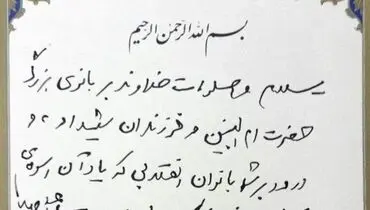 بسم الله الرحمن الرحیم
سلام و صلوات خداوند بر بانوی بزرگ
حضرت ام البنین و فرزندان شهید او، و
درود بر شما بانوان انقلابی که یاد آن اسوه‌ی